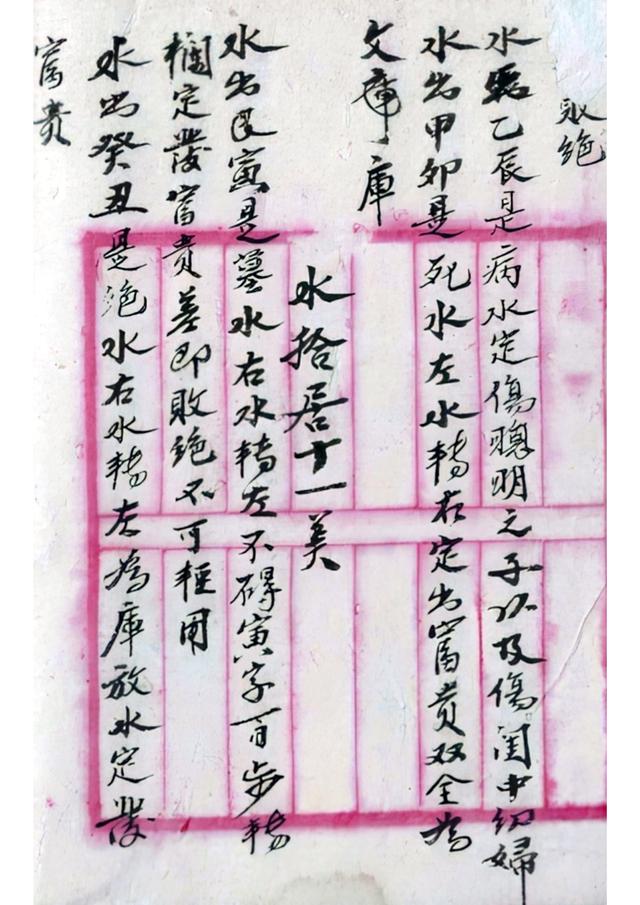 敗絕
水出乙辰是病水定傷聰明之子以及傷閨中幼婦
水出甲卯是死水左水轉右定出富貴双全為
文庫庫
水拾居十一美
水出艮寅是墓水右水轉左不碍寅字百步轉
欄定發富貴差即敗絕不可輕用
水出癸丑是絕水右水轉左為庫放水定發
富贵